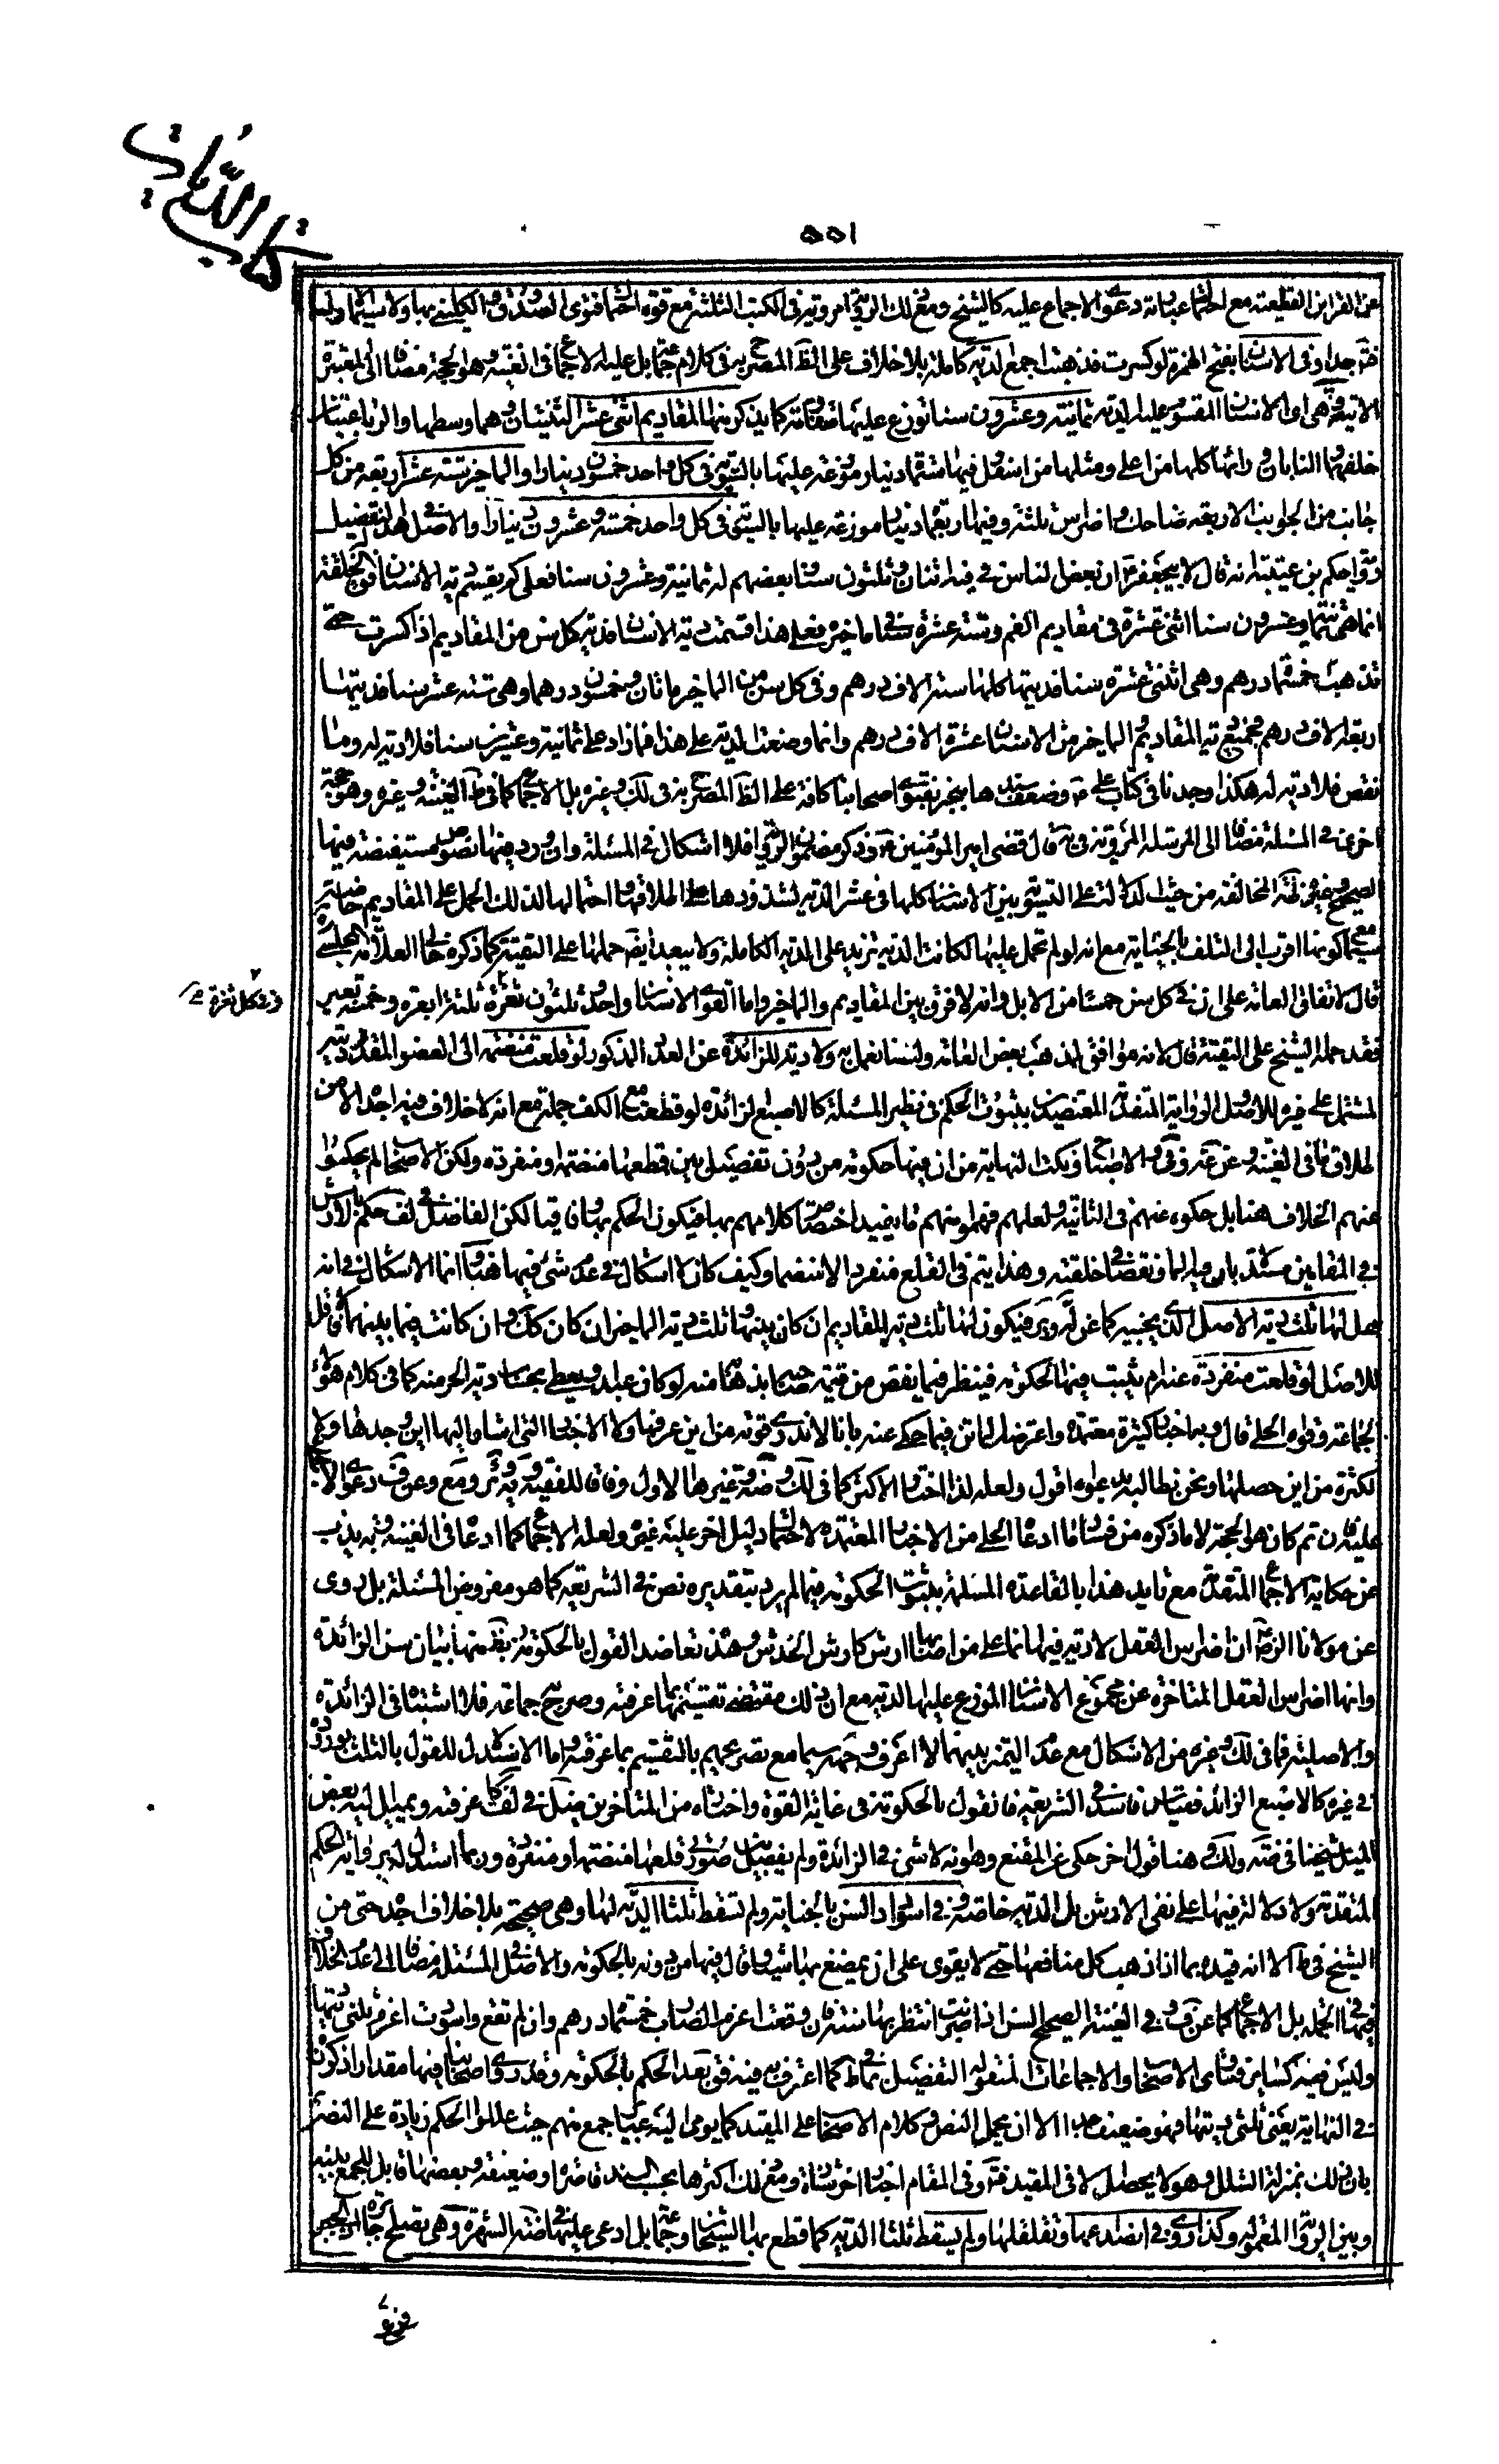 كتاب الديات
٥٥١
جدا وفى الاسنان بفتح الهمزة لو كسرت فذهبت اجمع الدية كاملة بلا خلاف على الظ المصرح به فى كلام
هى اى الاسنان المقسوم عليها الدية ثمانية وعشرون سنا توزع عليها كما يذكر منها المقاديم اثنى عشر الثنيتان وهما وسطها والرباعيتان
خلفهما والنابان ورائهما كلها من اعلى ومثلها من اسفل فيها ستمائة دينار موزعة عليها بالسوية فى كل واحد خمسون دينارا والماخير ستة عشر اربعة من كل
جانب من الجوانب الاربعة ضاحك واضراس ثلثة وفيها اربعمائة دينار موزعة عليها بالسوية فى كل واحد خمسة وعشرون دينارا والاصل فى هذا التفضيل
رواية حكم بن عتيبة انه قال لابيجعفر ع ان بعض الناس فى فيه اثنان وثلثون سنا وبعضهم له ثمانية وعشرون سنا فعلى كم يقسم دية الاسنان فق الخلقة
انما هى ثمانية وعشرون سنا اثنى عشرة فى مقاديم الفم وستة عشرة سنا فى ماخيره فعلى هذا قسمت دية الاسنان فدية كل سن من المقاديم اذا كسرت حتى
تذهب خمسمائة درهم وهى اثنتى عشرة سنا فديتها كلها ستة الاف درهم وفى كل سن من الماخير مائتان وخمسون درهما وهى ستة عشر سنا فديتها
اربعة الاف درهم فجميع دية المقاديم والماخير من الاسنان عشرة الاف درهم وانما وضعت الدية على هذا فما زاد على ثمانية وعشرين سنا فلا دية له وما
نقص فلا دية له هكذا وجدنا فى كتاب على ع وضعف سندها منجبر بفتوى اصحابنا كافة على الظ المصرح به فى لك وغيره بل الاجماع كما فى ط الغنية وغيره وهو حجة
اخرى فى المسئلة مضافا الى المرسلة المروية فى يه قال قضى امير المؤمنين ع وذكر مضمون الرواية فلا اشكال فى المسئلة وان ورد فيها نصوص مستفيضة فيها
الصحيح وغيره ظاهرة المخالفة من حيث الدلالة على التسوية بين الاسنان كلها فى عشر الدية لشذوذها على اطلاقها واحتمالها لذلك الحمل على المقاديم خاصة
سيما مع كونها اقرب الى التلف بالجناية مع انه لو لم تحمل عليها لكانت الدية تزيد على الدية الكاملة ولا يبعد ايض حملها على التقية كما ذكره خالى العلامة المجلسى
قال لاتفاق العامة على ان فى كل سن خمسا من الابل وانه لا فرق بين المقاديم والماخير واما القوى الاسنان واحد وثلثون ثغرة ثلثة ابعرة وخمسة بعير
وفى كل ثغرة
فقد حمله الشيخ على التقية قال لانه موافق لمذهب بعض العامة ولسنا نعمل به ولا دية للزائدة عن العدد المذكور لو قلعت منضمة الى العضو المقدر ديته
المشتمل على غيره للاصل والرواية المتقدمة المعتضدين بثبوت الحكم فى نظير المسئلة كالاصبع الزائدة لو قطعت مع الكف جملة مع انه لا خلاف فيه اجده الا من
اطلاق ما فى الغنية وعن عة وفى الاصباح ونكت النهاية من ان فيها حكومة من دون تفصيل بين قطعها منضمة او منفردة ولكن الاصحاب لم يحكوا
عنهم الخلاف هنا بل حكوه عنهم فى الثانية ولعلهم فهموا منهم ما يفيد اختصاص كلامهم بها فيكون الحكم بها وفاقيا لكن الفاضل فى لف حكم بالارش
فى المقامين مستدلا بان فيه الما ونقصا فى خلقته وهذا يتم فى القلع منفردا لا منضما وكيف كان لا اشكال فى عدم شئ فيها هنا وانما الاشكال فى انه
هل لها ثلث دية الاصلى الذى بجنبيه كما عن يه و فيكون لها ثلث دية المقاديم ان كان بينها وثلث دية الماخير ان كان كك وان كانت فيما بينهما فاقل
للاصل لو قلعت منفردة عنه ام يثبت فيها الحكومة فينظر فيما ينقص من قيمة صاحبها بذهابها منه لو كان عبدا ويعطى بحساب دية الحر منه كما فى كلام هؤلاء
الجماعة وقواه الحلى قال وبه اخبار كثيرة معتمدة واعترضه الماتن فيما حكى عنه بانا لا ندرى قوته من اين عرفها ولا الاخبار التى اشار اليها اين وجدها ولا
الكثرة من اين حصلها ونحن نطالبه بدعواه اقول ولعله لذا اختار الاكثر كما فى لك وضة وغيرها الاول وفاقا للفقيه ويه ور ومع وعن ف دعوى الاجماع
عليه فان تم كان هو الحجة لا ما ذكروه من فساد ما ادعاه الحلى من الاخبار المعتمدة لاحتمال دليل اخر عليه غيرها ولعله الاجماع كما ادعاه فى الغنية وبه يذب
عن حكاية الاجماع المتقدمة مع تايد هذا بالقاعدة المسلمة بثبوت الحكومة فيما لم يرد بتقديره نص فى الشريعة كما هو مفروض المسئلة بل روى
عن مولانا الرضا ع ان اضراس العقل لا دية فيها انما على من اصابها ارش كارش الخدش وهذا تعاضد القول بالحكومة بتضمنها بيان سن الزائدة
وانها اضراس العقل المتاخرة عن مجموع الاسنان الموزع عليها الدية مع ان ذلك مقتضى تقسيمها بما عرفته وصريح جماعة فلا اشتباه فى الزائدة
والاصلية فما فى لك وغيره من الاشكال مع عدم التميز بينهما لا اعرف وجهه سيما مع تصريحهم بالتقسيم بما عرفته واما الاستدلال للقول بالثلث بوروده
فى غيره كالاصبع الزائد فقياس فاسد فى الشريعة فالقول بالحكومة فى غاية القوة واختاره من المتاخرين فى لف كما عرفته ويميل اليه بعض
الميل شيخنا فى ضة ولك وهنا قول اخر حكى عن المقنع وهو انه لا شئ فى الزائدة ولم يفصل بين صورتى قلعها منضمة او منفردة وربما استدل له برواية الحكم
المتقدمة ولا دلالة فيها على نفى الارش بل الدية خاصة وفى اسوداد السن بالجناية ولم تسقط ثلثا الدية لها وهى صحيحة بلا خلاف اجده حتى من
الشيخ فى ط الا انه قيده بما اذا ذهب كل منافعها حتى لا يقوى على ان يمضغ بها شيئا وقال فيها من دونه بالحكومة والاصل فى المسئلة مضافا الى عدم الخلاف
فيها فى الجملة بل الاجماع كما عن ف وفى الغنية الصحيح السن اذا ضربت انتظر بها سنة فان وقعت اغرم الضارب خمسمائة درهم وان لم تقع واسودت اغرم ثلثى ديتها
وليس فيه كساير فتاوى الاصحاب والاجماعات المنقولة التفصيل فى ط كما اعترف به فيه فق بعد الحكم بالحكومة وقد روى اصحابنا فيها مقدار اذكرناه
فى النهاية يعنى ثلثى ديتها فهو ضعيف جدا الا ان يحمل النص وكلام الاصحاب على المقيد كما يومى اليه عبارة جمع منهم حيث عللوا الحكم زيادة على النص
بان ذلك بمنزلة الشلل وهو لا يحصل الا فى المقيد وفى المقام اخبار اخر شاذة ومع ذلك اكثرها بحسب السند قاصرة او ضعيفة وبعضها قابل للجمع بينه
وبين الرواية المعمولة وكذا روى فى انصداعها وتقلقلها ولم يسقط ثلثا الدية كما قطع به الشيخان وجماعة بل ادعى عليه فى ضة الشهرة وهى تصلح جابرة